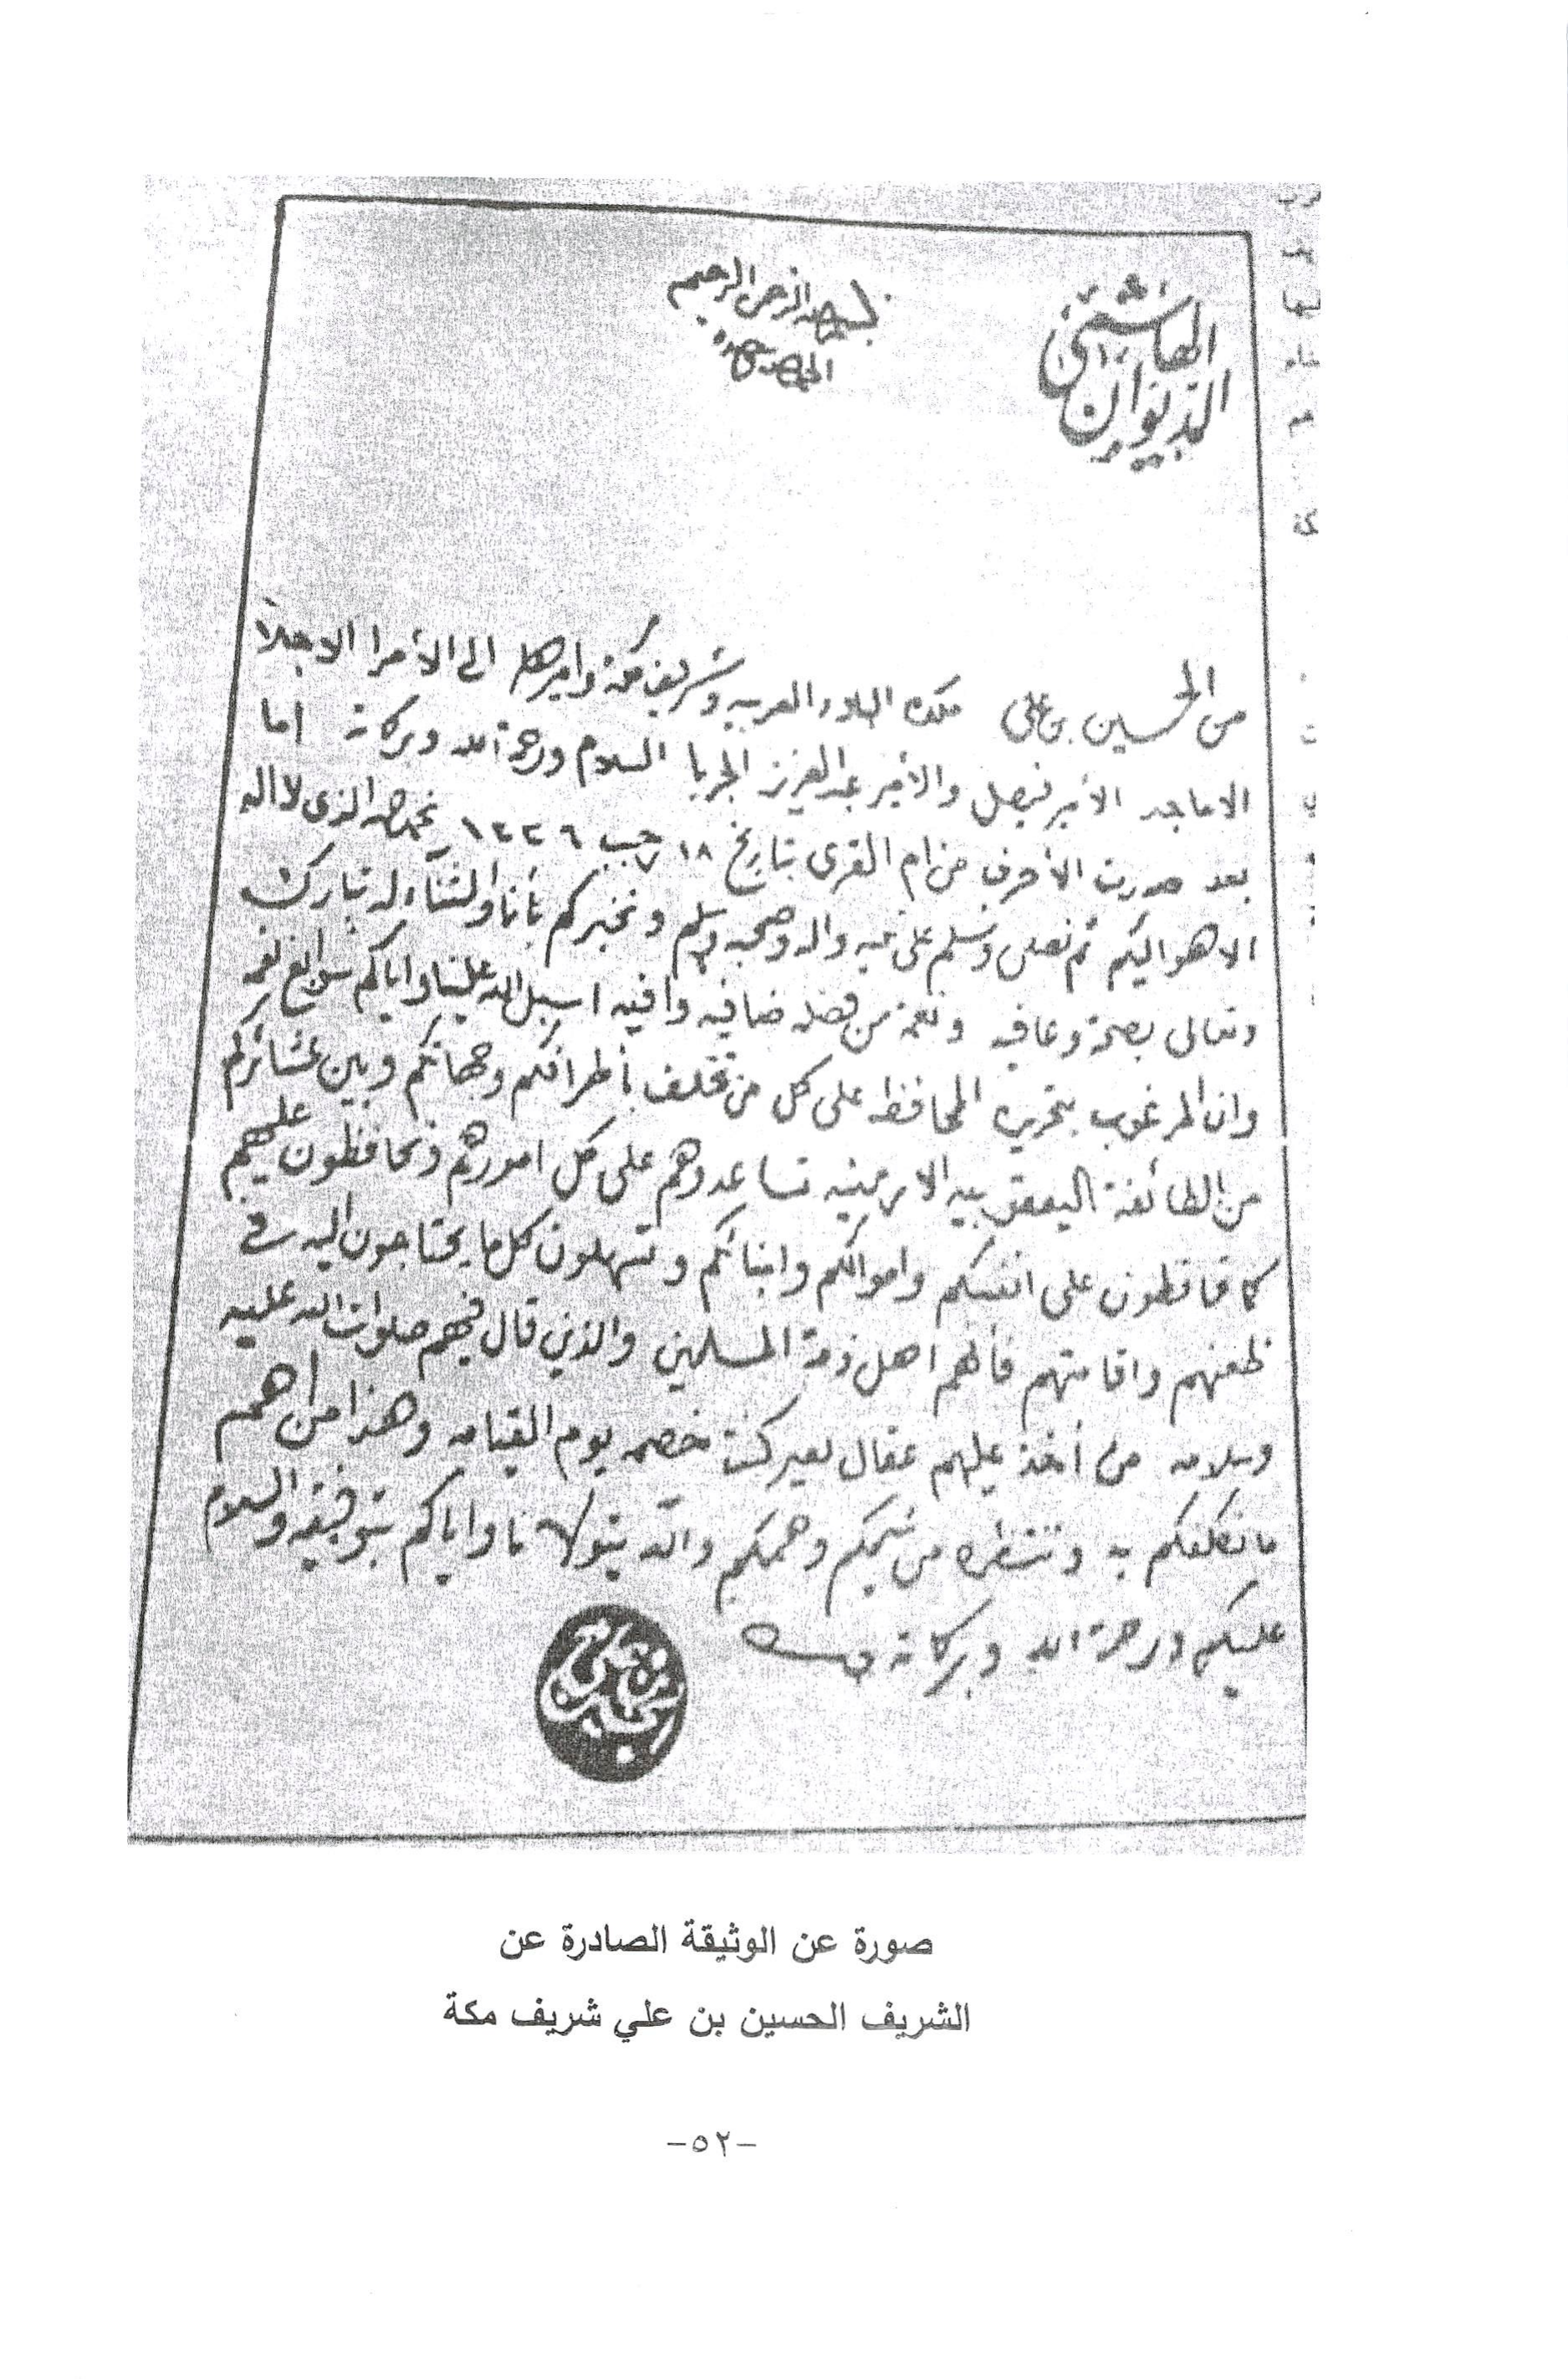 الديوان الهاشمي
بسم الله الرحمن الرحيم
الحمد لله وحده
من الحسين بن علي ملك البلاد العربيه وشريف مكة واميرها الى الأمرا الاجلا
الاماجد الأمير فيصل والأمير عبد العزيز الجربا السلام ورحمة الله وبركاته اما
بعد صدرت الأحرف من ام القرى بتاريخ ١٨ رجب ١٣٣٦ نحمد الله الذي لا اله
الا هو اليكم ثم نصلي ونسلم على نبيه واله وصحبه وسلم ونخبركم بأنا والثناء له تبارك
وتعالى بصحة وعافيه ونعمة من فضله ضافيه وافيه اسبل الله علينا واياكم سوابغ نعمه
وان المرغوب بتحريره المحافظه على كل من تخلف بأطرافكم وجهاتكم وبين عشائركم
من الطائفة اليعقوبيه الارمينيه تساعدوهم على كل امورهم وتحافظون عليهم
كما تحافظون على انفسكم واموالكم وابنائكم وتسهلون كل ما يحتاجون اليه في
ظعنهم واقامتهم فانهم اهل ذمة المسلمين والذين قال فيهم صلوات الله عليه
وسلامه من أخذ عليهم عقال بعير كنت خصمه يوم القيامه وهذا من اهم
ما نكلفكم به وننتظره من شيمكم وهممكم والله يتولانا واياكم بتوفيقه والسلام
عليكم ورحمة الله وبركاته
الحسين بن علي
صورة عن الوثيقة الصادرة عن
الشريف الحسين بن علي شريف مكة
-٥٢-